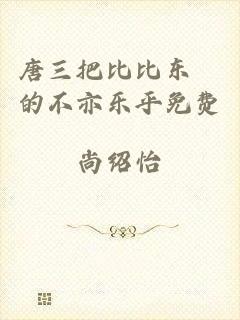 唐三把比比东
的不亦乐乎免费
尚绍怡